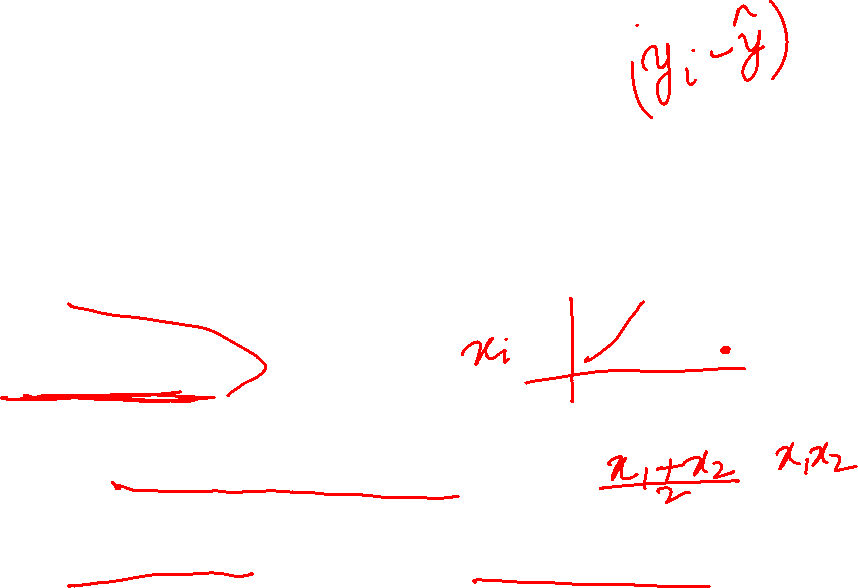 (yᵢ - ŷ)
xᵢ
(x₁ + x₂)/2 x₁x₂